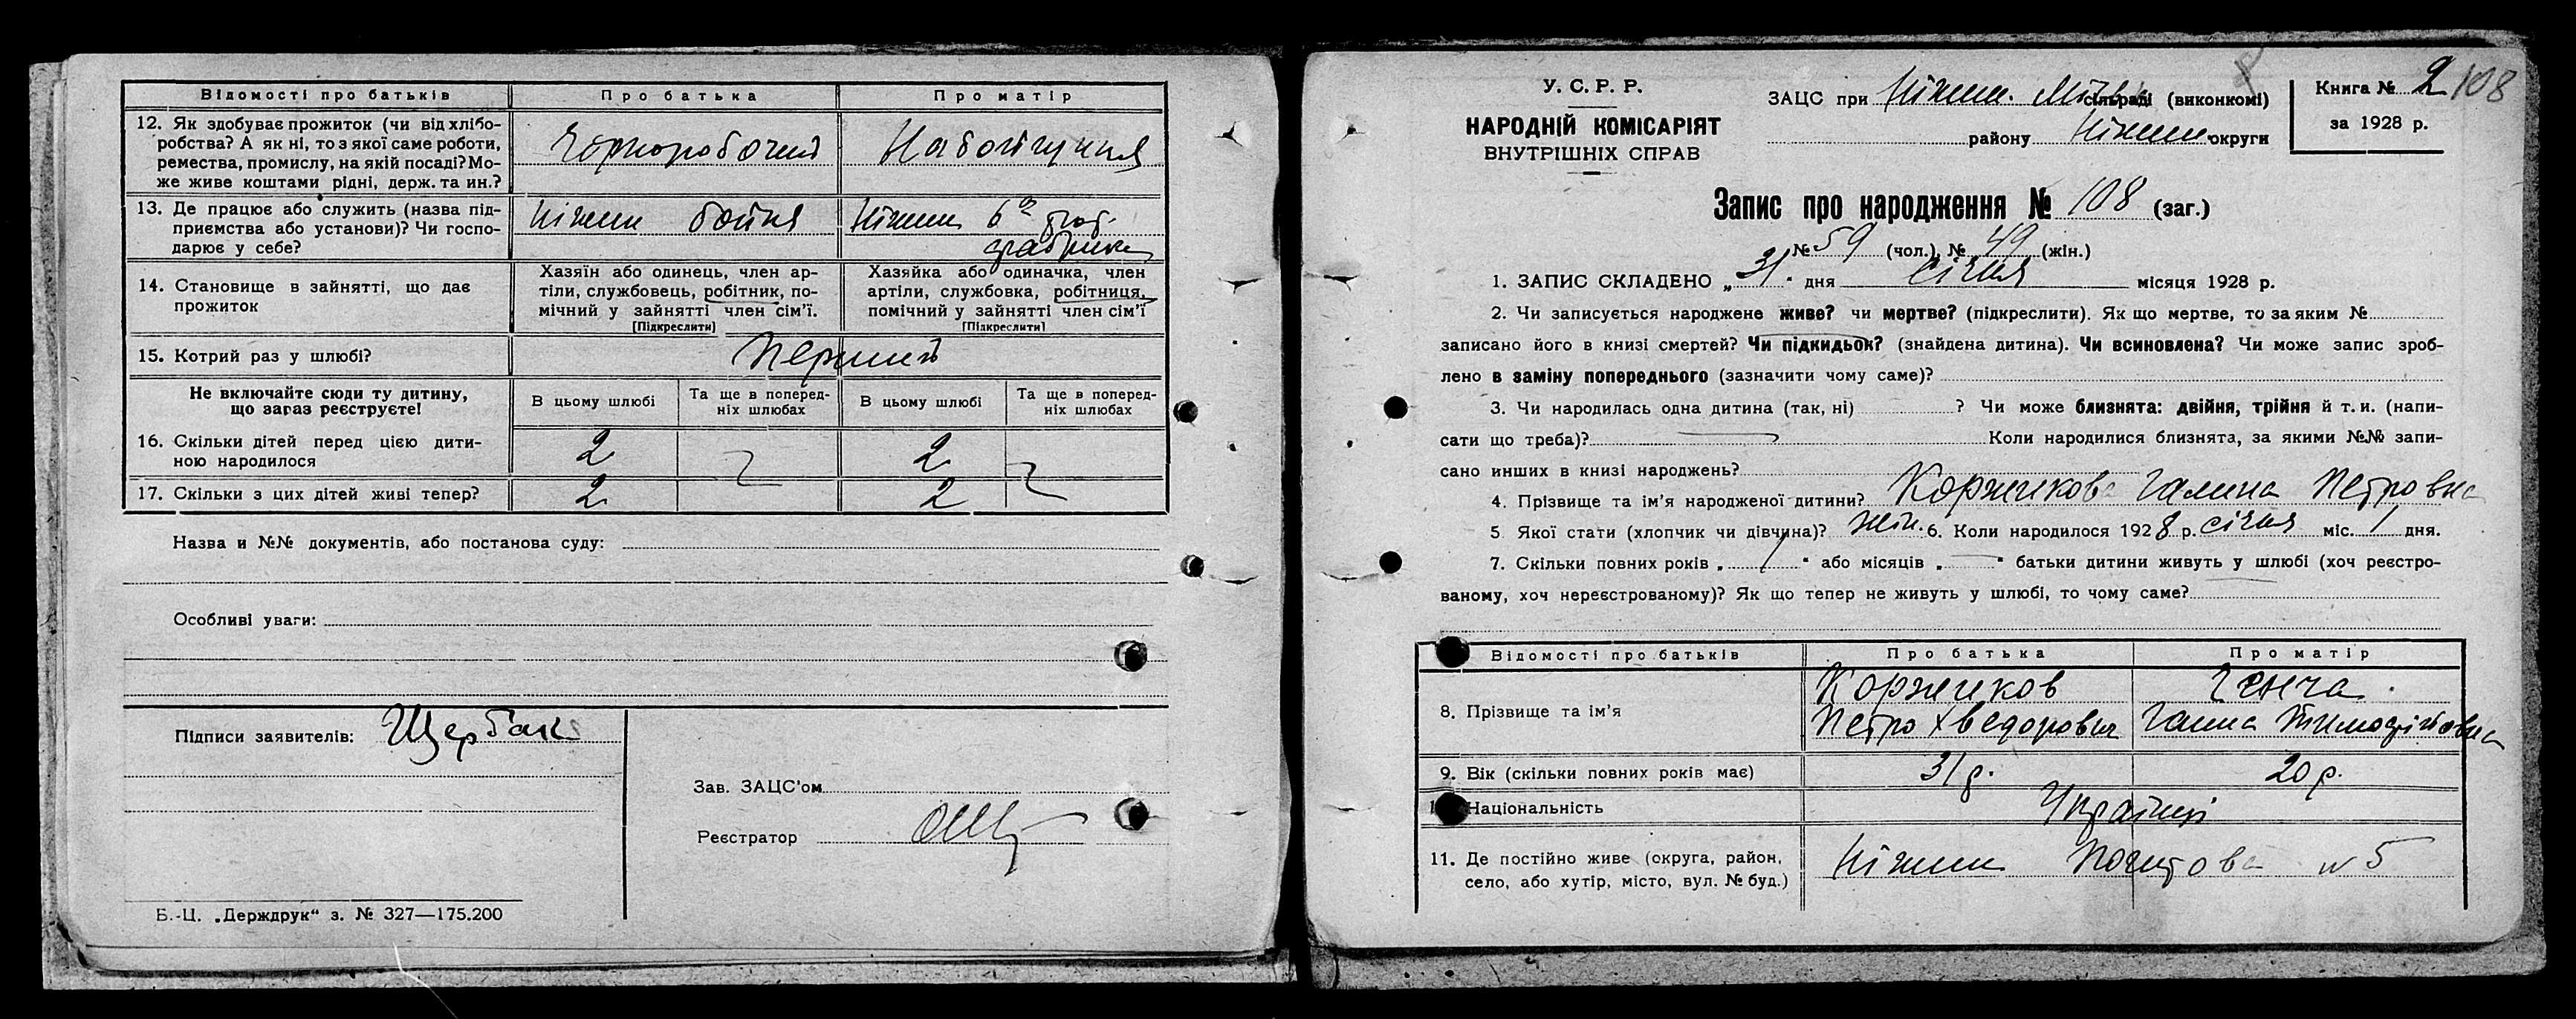 Відомості про батьків Про батька Про матір
12. Як здобуває прожиток (чи від хлібо-
робства? А як ні, то з якої саме роботи,
ремества, промислу, на якій посаді? Мо-
же живе коштами рідні, держ. та ин.?
Чорноробочий Набойщиця
13. Де працює або служить (назва під-
приємства або установи)? Чи госпо-
дарює у себе?
Ніжин бойня Ніжин 6а
фабрика
14. Становище в зайнятті, що дає
прожиток
Хазяїн або одинець, член ар-
тіли, службовець, робітник, по-
мічний у зайнятті член сім'ї.
[Підкреслити]
Хазяйка або одиначка, член
артіли, службовка, робітниця,
помічний у зайнятті член сім'ї
[Підкреслити]
15. Котрий раз у шлюбі? Перший
Не включайте сюди ту дитину,
що загаз реєструєте!
В цьому шлюбі Та ще в поперед-
ніх шлюбах В цьому шлюбі Та ще в поперед-
ніх шлюбах
16. Скільки дітей перед цією дити-
ною народилося 2 2
17. Скільки з цих дітей живі тепер? 2 2
Назва и №№ документів, або постанова суду:
Особливі уваги:
Підписи заявителів: Щербак
Зав. ЗАЦС'ом
Реєстратор
Б.-Ц. „Держдрук" з. № 327—175.200
У. С. Р. Р.
НАРОДНІЙ КОМІСАРІЯТ
ВНУТРІШНІХ СПРАВ
ЗАЦС при Ніжин. Міськ сільраді (виконкомі)
району Ніжин. округи
Книга № 2 108
за 1928 р.
Запис про народження № 108 (заг.)
№ 59 (чол.), № 49 (жін.)
1. ЗАПИС СКЛАДЕНО „31" дня січня місяця 1928 р.
2. Чи записується народжене живе? чи мертве? (підкреслити). Як що мертве, то за яким №
записано його в книзі смертей? Чи підкидьок? (знайдена дитина). Чи всиновлена? Чи може запис зроб-
лено в заміну попереднього (зазначити чому саме)?
3. Чи народилась одна дитина (так, ні) ? Чи може близнята: двійня, трійня й т. и. (напи-
сати що треба)? Коли народилися близнята, за якими №№ запи-
сано инших в книзі народжень?
4. Прізвище та ім'я народженої дитини? Коржикова Галина Петровна
5 Якої стати (хлопчик чи дівчина)? жін. 6. Коли народилося 1928 р. січня міс. 1 дня.
7. Скільки повних років „ 1 " або місяців „ — " батьки дитини живуть у шлюбі (хоч реєстро-
ваному, хоч нереєстрованому)? Як що тепер не живуть у шлюбі, то чому саме?
Відомості про батьків Про батька Про матір
8. Прізвище та ім'я
Коржиков
Петро Хведорович
Генча
Ганна Тимофіївна
9. Вік (скільки повних років має) 31 р. 20 р.
Національність Українці
11. Де постійно живе (округа, район,
село, або хутір, місто, вул. № буд.)
Ніжин Поштова № 5